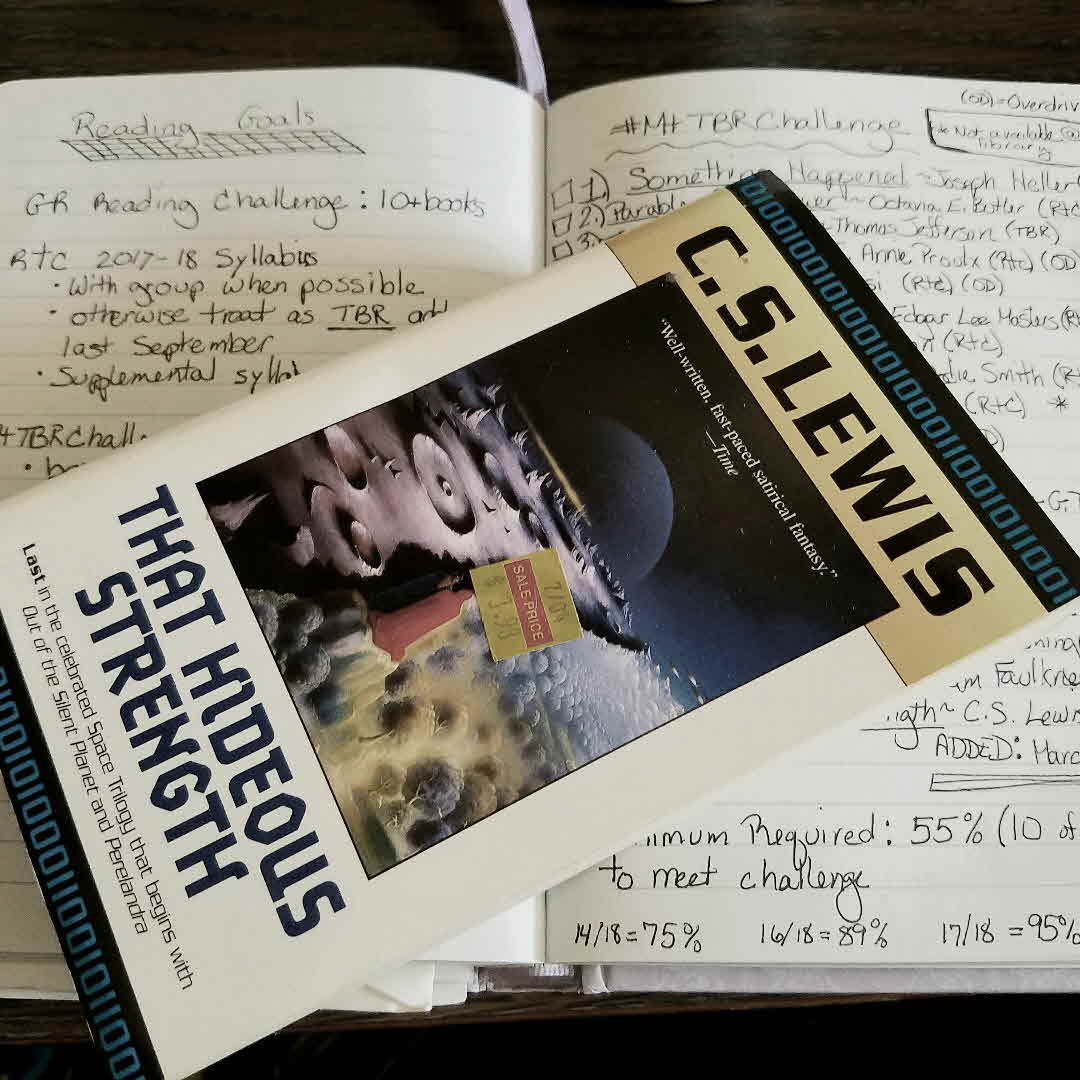 Reading Goals
GR Reading Challenge : 10+books
RtC 2017-18 Syllabus
• With group when possible
• otherwise treat as TBR add
last September
• Supplemental
TBRChall
#Mt TBRChallenge
(OD)=Overdriv
* Not available
library
1) Something Happened ~Joseph Heller
2) Parabl er ~ Octavia E. Butler (RtC
3) Thomas Jefferson (TBR)
Anne Proulx (RtC) (OD)
si (RtC) (OD)
Edgar Lee Masters (R
(RtC)
die Smith (R
(RtC) *
~ G.
Faulkne
ngth~ C.S. Lewi
ADDED: Marc
imum Required: 55% (10 of
to meet challenge
14/18=75% 16/18=89% 17/18=95%
C.S. LEWIS
"Well-written, fast-paced satirical fantasy."
—Time
SALE PRICE
THAT HIDEOUS
STRENGTH
Last in the celebrated Space Trilogy that begins with
Out of the Silent Planet and Perelandra